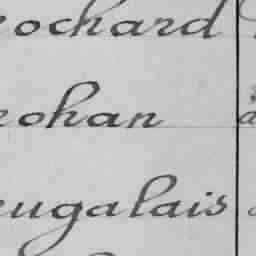 eochard
eohan
eugalais